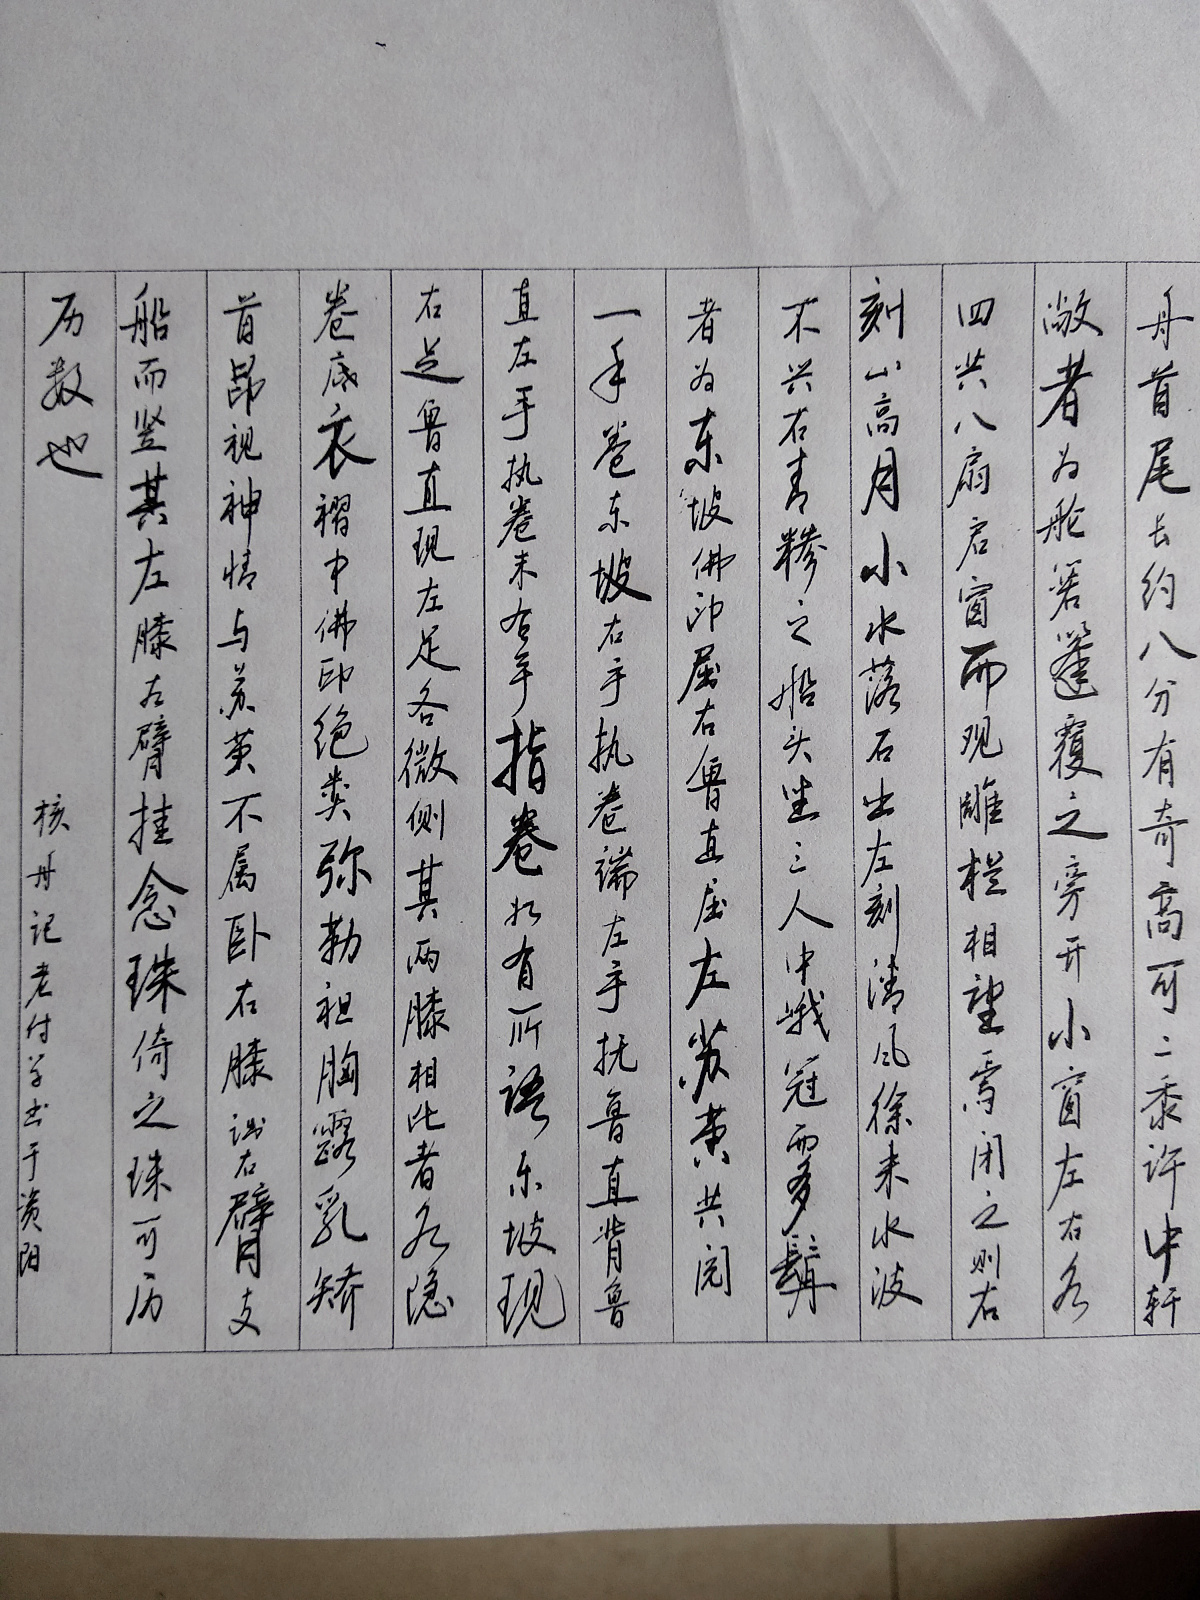 舟首尾长约八分有奇高可二黍许中轩
敞者为舱箬篷覆之旁开小窗左右各
四共八扇启窗而观雕栏相望焉闭之则右
刻山高月小水落石出左刻清风徐来水波
不兴石青糁之船头坐三人中峨冠而多髯
者为东坡佛印居右鲁直居左苏黄共阅
一手卷东坡右手执卷端左手抚鲁直背鲁
直左手执卷末右手指卷如有所语东坡现
右足鲁直现左足各微侧其两膝相比者各隐
卷底衣褶中佛印绝类弥勒袒胸露乳矫
首昂视神情与苏黄不属卧右膝诎右臂支
船而竖其左膝左臂挂念珠倚之珠可历
历数也
核舟记老付学书于资阳